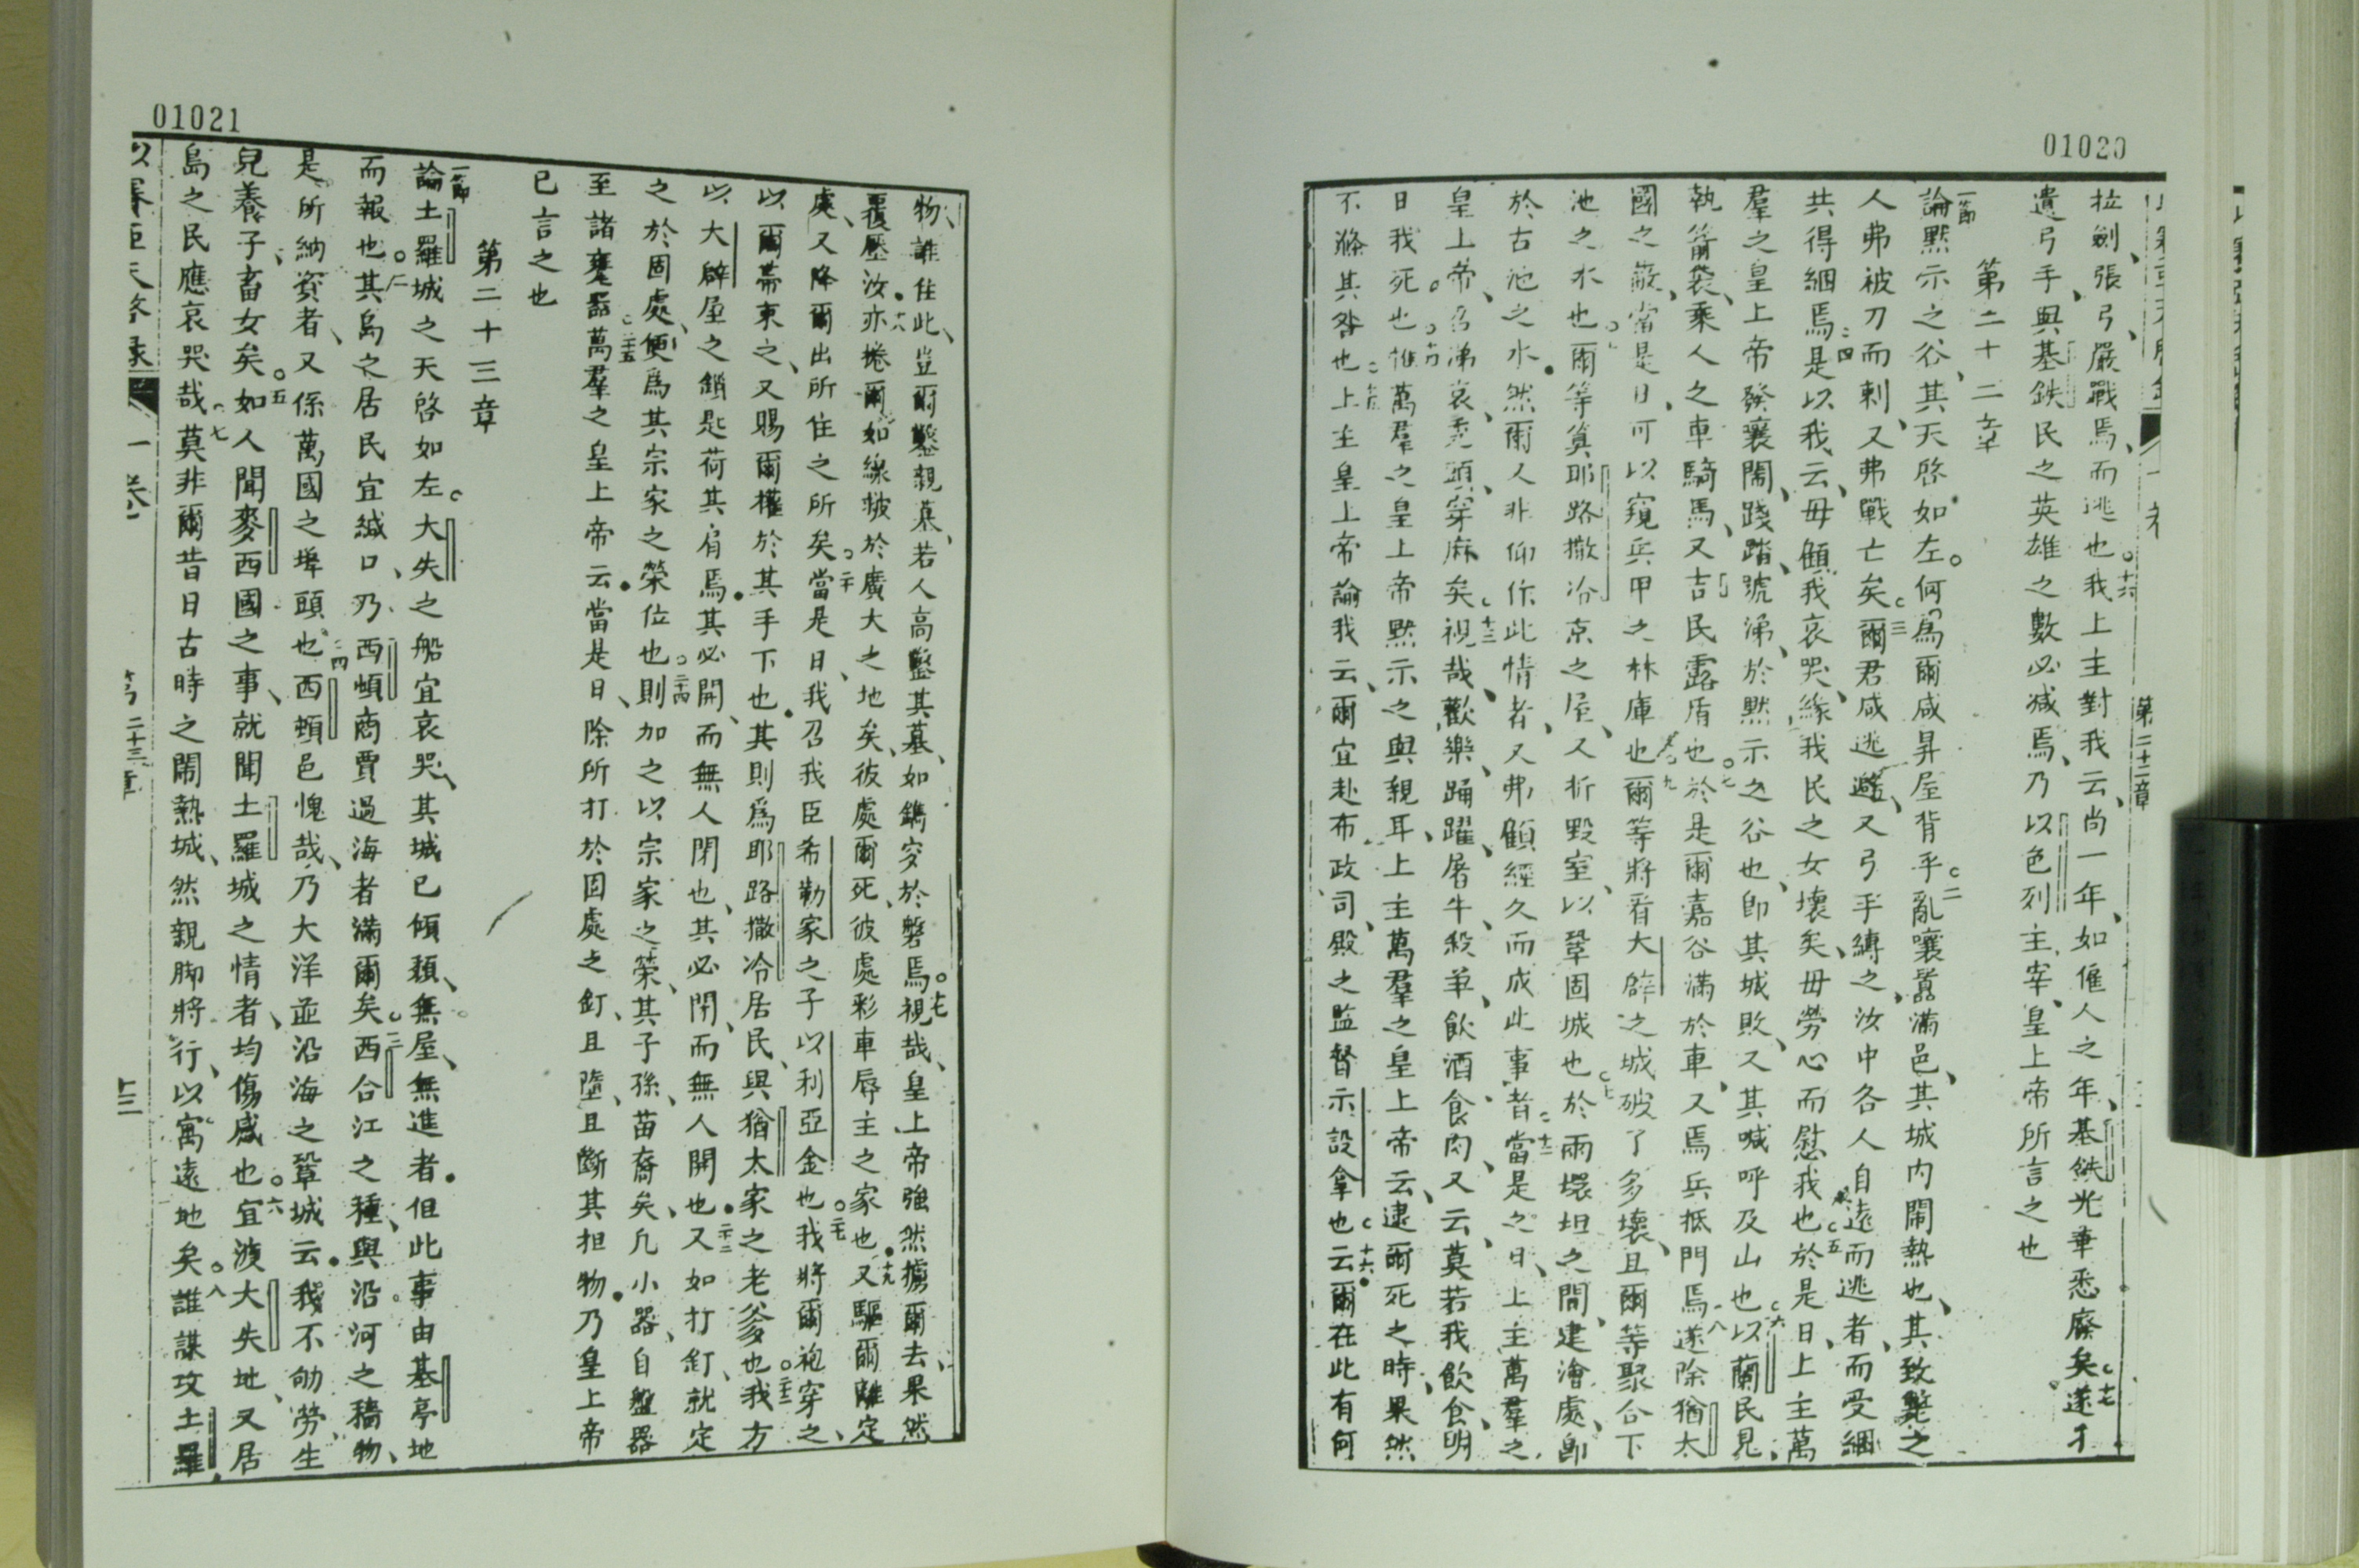 01020
第二十二章
拉劍、張弓、嚴戰焉、而逃也。十六我上主對我云、尚一年、如僱人之年、基鉄光華悉廢矣。十七遂才
遺弓手、與基鉄民之英雄之數必減焉、乃以色列主宰、皇上帝所言之也
第二十二章
一節論黙示之谷、其天啓如左。何為爾咸昇屋背乎。二亂嚷囂滿邑、其城內閙熱也、其致斃之
人弗被刀而刺、又弗戰亡矣。三爾君咸逃避、又弓手縛之、汝中各人自遠而逃者、而受綑
共得綑焉。四是以我云、毋傾我哀哭、緣我民之女壞矣、毋勞心而慰我也。五於是日、上主萬
羣之皇上帝發嚷閙、踐踏、號涕、於黙示之谷也、即其城敗、又其喊呼及山也。六以蘭民見、
執箭袋、乘人之車、騎馬、又吉民露盾也。七於是爾嘉谷滿於車、又焉兵抵門焉。八遂除猶太
國之蔽、當是日、可以窺兵甲之林庫也。九爾等將看大辟之城破了多壞、且爾等聚合下
池之水也。爾等算耶路撒冷京之屋、又折毀室、以鞏固城也。於兩壞坦之間、建澮處、即
於古池之水、然爾人非仰作此情者、又弗顧經久而成此事者。十二當是之日、上主萬羣之
皇上帝、召涕哀、禿頭、穿麻矣。十三視哉、歡樂、踊躍、屠牛、殺羊、飲酒、食肉、又云、莫若我飲食、明
日我死也。十四惟萬羣之皇上帝黙示之與親耳、上主萬羣之皇上帝云、逮爾死之時、果然
不滌其咎也。十五上主皇上帝諭我云、爾宜赴布政司、殿之監督示設拿也。十六云、爾在此有何
01021
物、誰住此、豈爾鑿親墓、若人高鑿其墓、如鐫穵於磐焉。十七視哉、皇上帝強然擄爾去、果然
覆壓汝。十八亦捲爾、如線毬於廣大之地矣、彼處爾死、彼處彩車辱主之家也。十九又驅爾離定
處、又降爾出所住之所矣。二十當是日、我召我臣希勒家之子以利亞金也。二十一我將爾袍穿之、
以爾帶束之、又賜爾權於其手下也。其則為耶路撒冷居民、與猶太家之老爹也。二十二我方
以大辟屋之鎖匙荷其肩焉。其必開、而無人閉也、其必閉、而無人開也。二十三又如打釘、就定
之於固處、便為其宗家之榮位也。二十四則加之以宗家之榮、其子孫、苗裔矣、凡小器、自盤器
至諸甕器。二十五萬羣之皇上帝云、當是日、除所打於固處之釘、且墮、且斷其担物。乃皇上帝
已言之也
第二十三章
一節論土羅城之天啓如左。大失之船宜哀哭、其城已傾頹、無屋、無進者。但此事由基亭地
而報也。二其島之居民宜緘口、乃西頓商賈過海者滿爾矣。三西合江之種、與沿河之穡物、
是所納資者、又係萬國之埠頭也。四西頓邑愧哉、乃大洋並沿海之鞏城云。我不劬勞、生
兒養子、畜女矣。五如人聞麥西國之事、就聞土羅城之情者、均傷感也。六宜渡大失地、又居
島之民應哀哭哉。七莫非爾昔日古時之閙熱城、然親脚將行、以寓遠地矣。八誰謀攻土羅
以賽亞天啓錄　一卷　第二十三章　十三